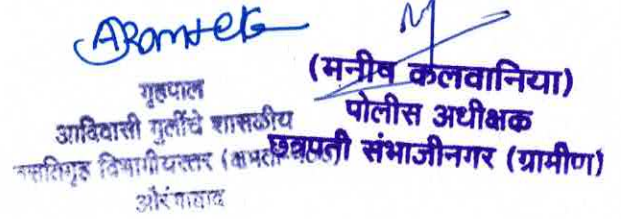 गृहपाल
आदिवासी मुलींचे शासकीय
वसतिगृह विभागीयस्तर (क्षमता
औरंगाबाद
(मनीष कलवानिया)
पोलीस अधीक्षक
छत्रपती संभाजीनगर (ग्रामीण)